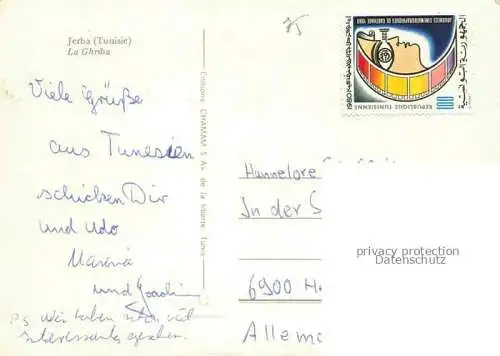 Jerba (Tunisie)
La Ghriba
Viele Grüße
aus Tunesien
schicken Dir
und Udo
Marina
und Joachim
PS Wir haben schon viel
interessantes gesehen.
Editions CHAMAM 5 Av de la liberté Tunis
75
JOURNEES CINEMATOGRAPHIQUES DE CARTHAGE 1980
الجمهورية التونسية
REPUBLIQUE TUNISIENNE
1980
Hannelore
In der S
6900 H
Allem
privacy protection
Datenschutz